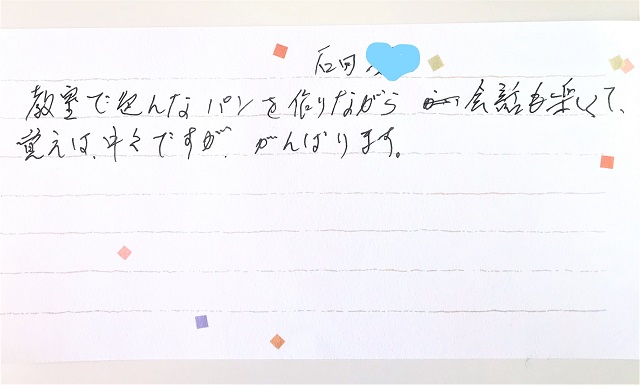 石田
教室で色んなパンを作りながら 会話も楽しくて、
覚えは、中々ですが、がんばります。